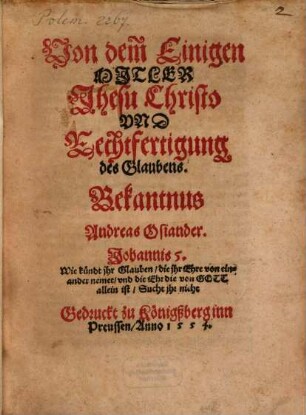 Polem. 2267.
2
Von dem̃ Einigen
MITLER
Jhesu Christo
VND
Rechtfertigung
des Glaubens.
Bekantnus
Andreas Osiander.
Johannis 5.
Wie kündt jhr Glauben / die jhr Ehre von ein-
ander nemet / vnd die Ehr die von GOTT
allein ist / Sucht jhr nicht
Gedruckt zu Königßberg inn
Preussen / Anno 1554.